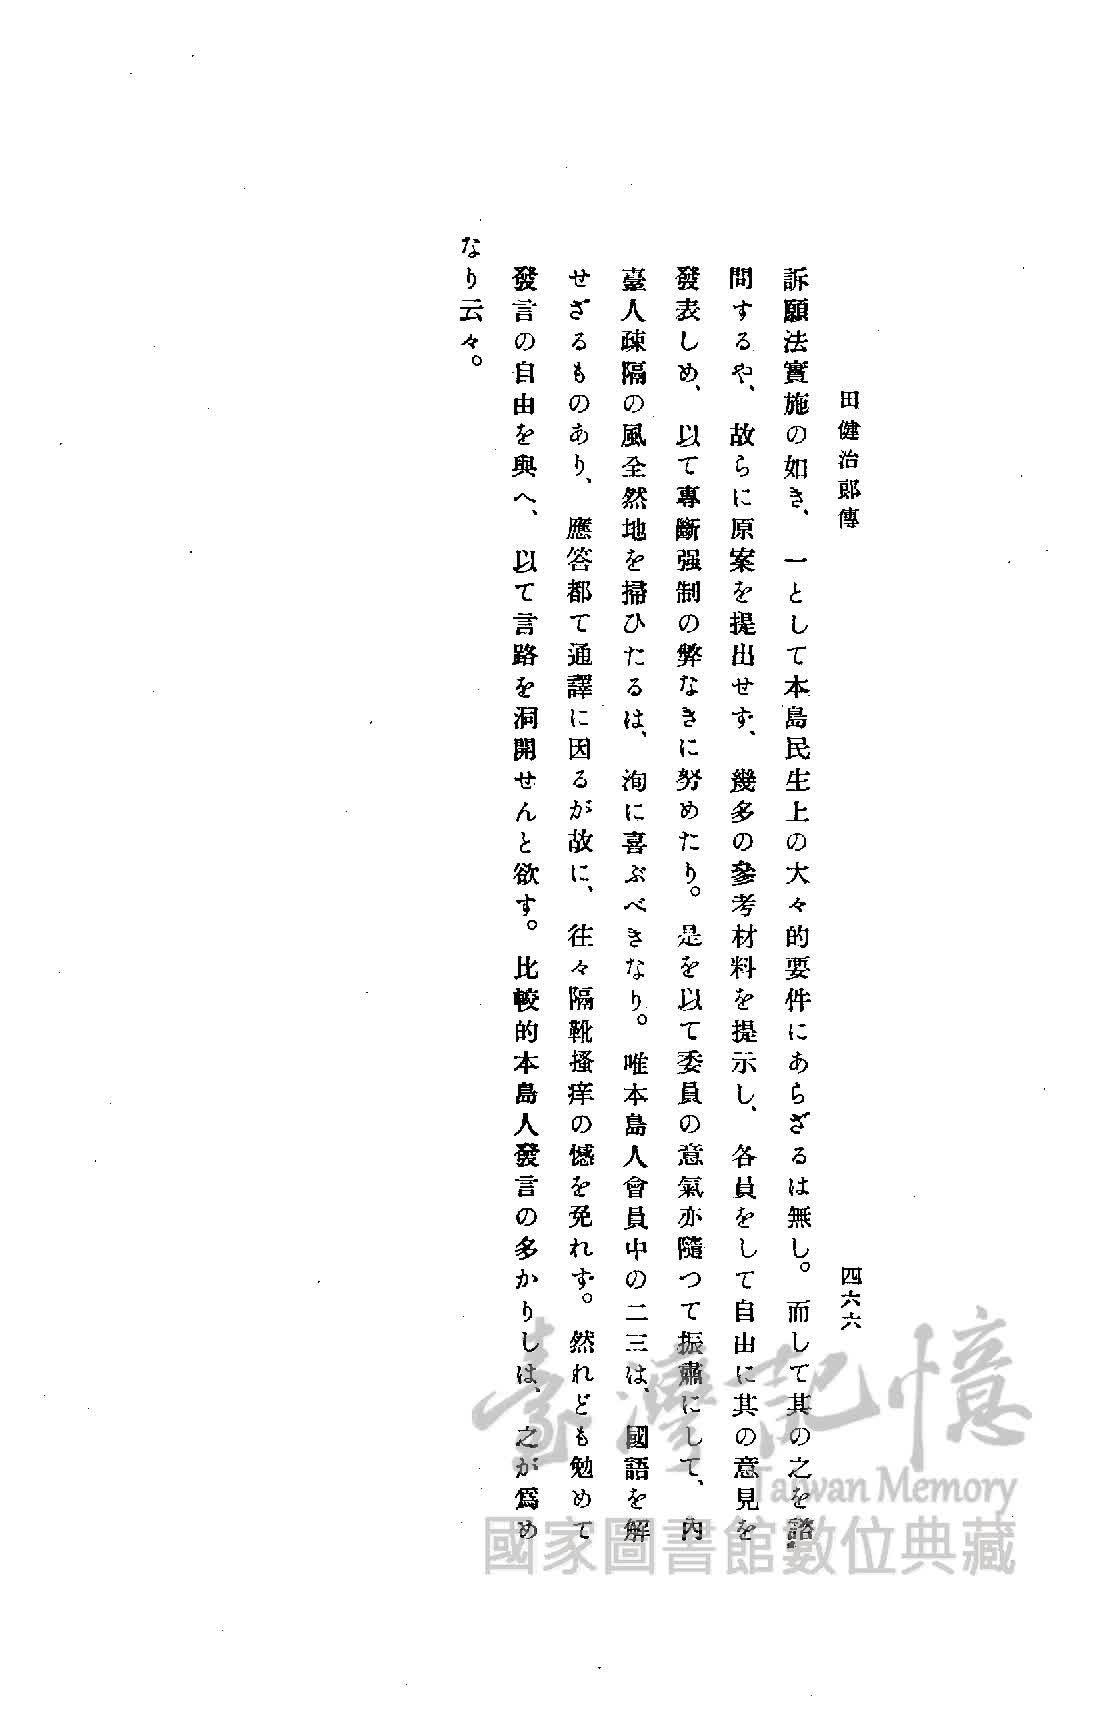 田健治郞傳
四六六
訴願法實施の如き、一として本島民生上の大々的要件にあらざるは無し。而して其の之を諮
問するや、故らに原案を提出せず、幾多の參考材料を提示し、各員をして自由に其の意見を
發表しめ、以て專斷强制の弊なきに努めたり。是を以て委員の意氣亦隨つて振肅にして、內
臺人疎隔の風全然地を掃ひたるは、洵に喜ぶべきなり。唯本島人會員中の二三は、國語を解
せざるものあり、應答都て通譯に因るが故に、往々隔靴搔痒の憾を免れず。然れども勉めて
發言の自由を與へ、以て言路を洞開せんと欲す。比較的本島人發言の多かりしは、之が爲め
なり云々。
臺灣記憶
Taiwan Memory
國家圖書館數位典藏